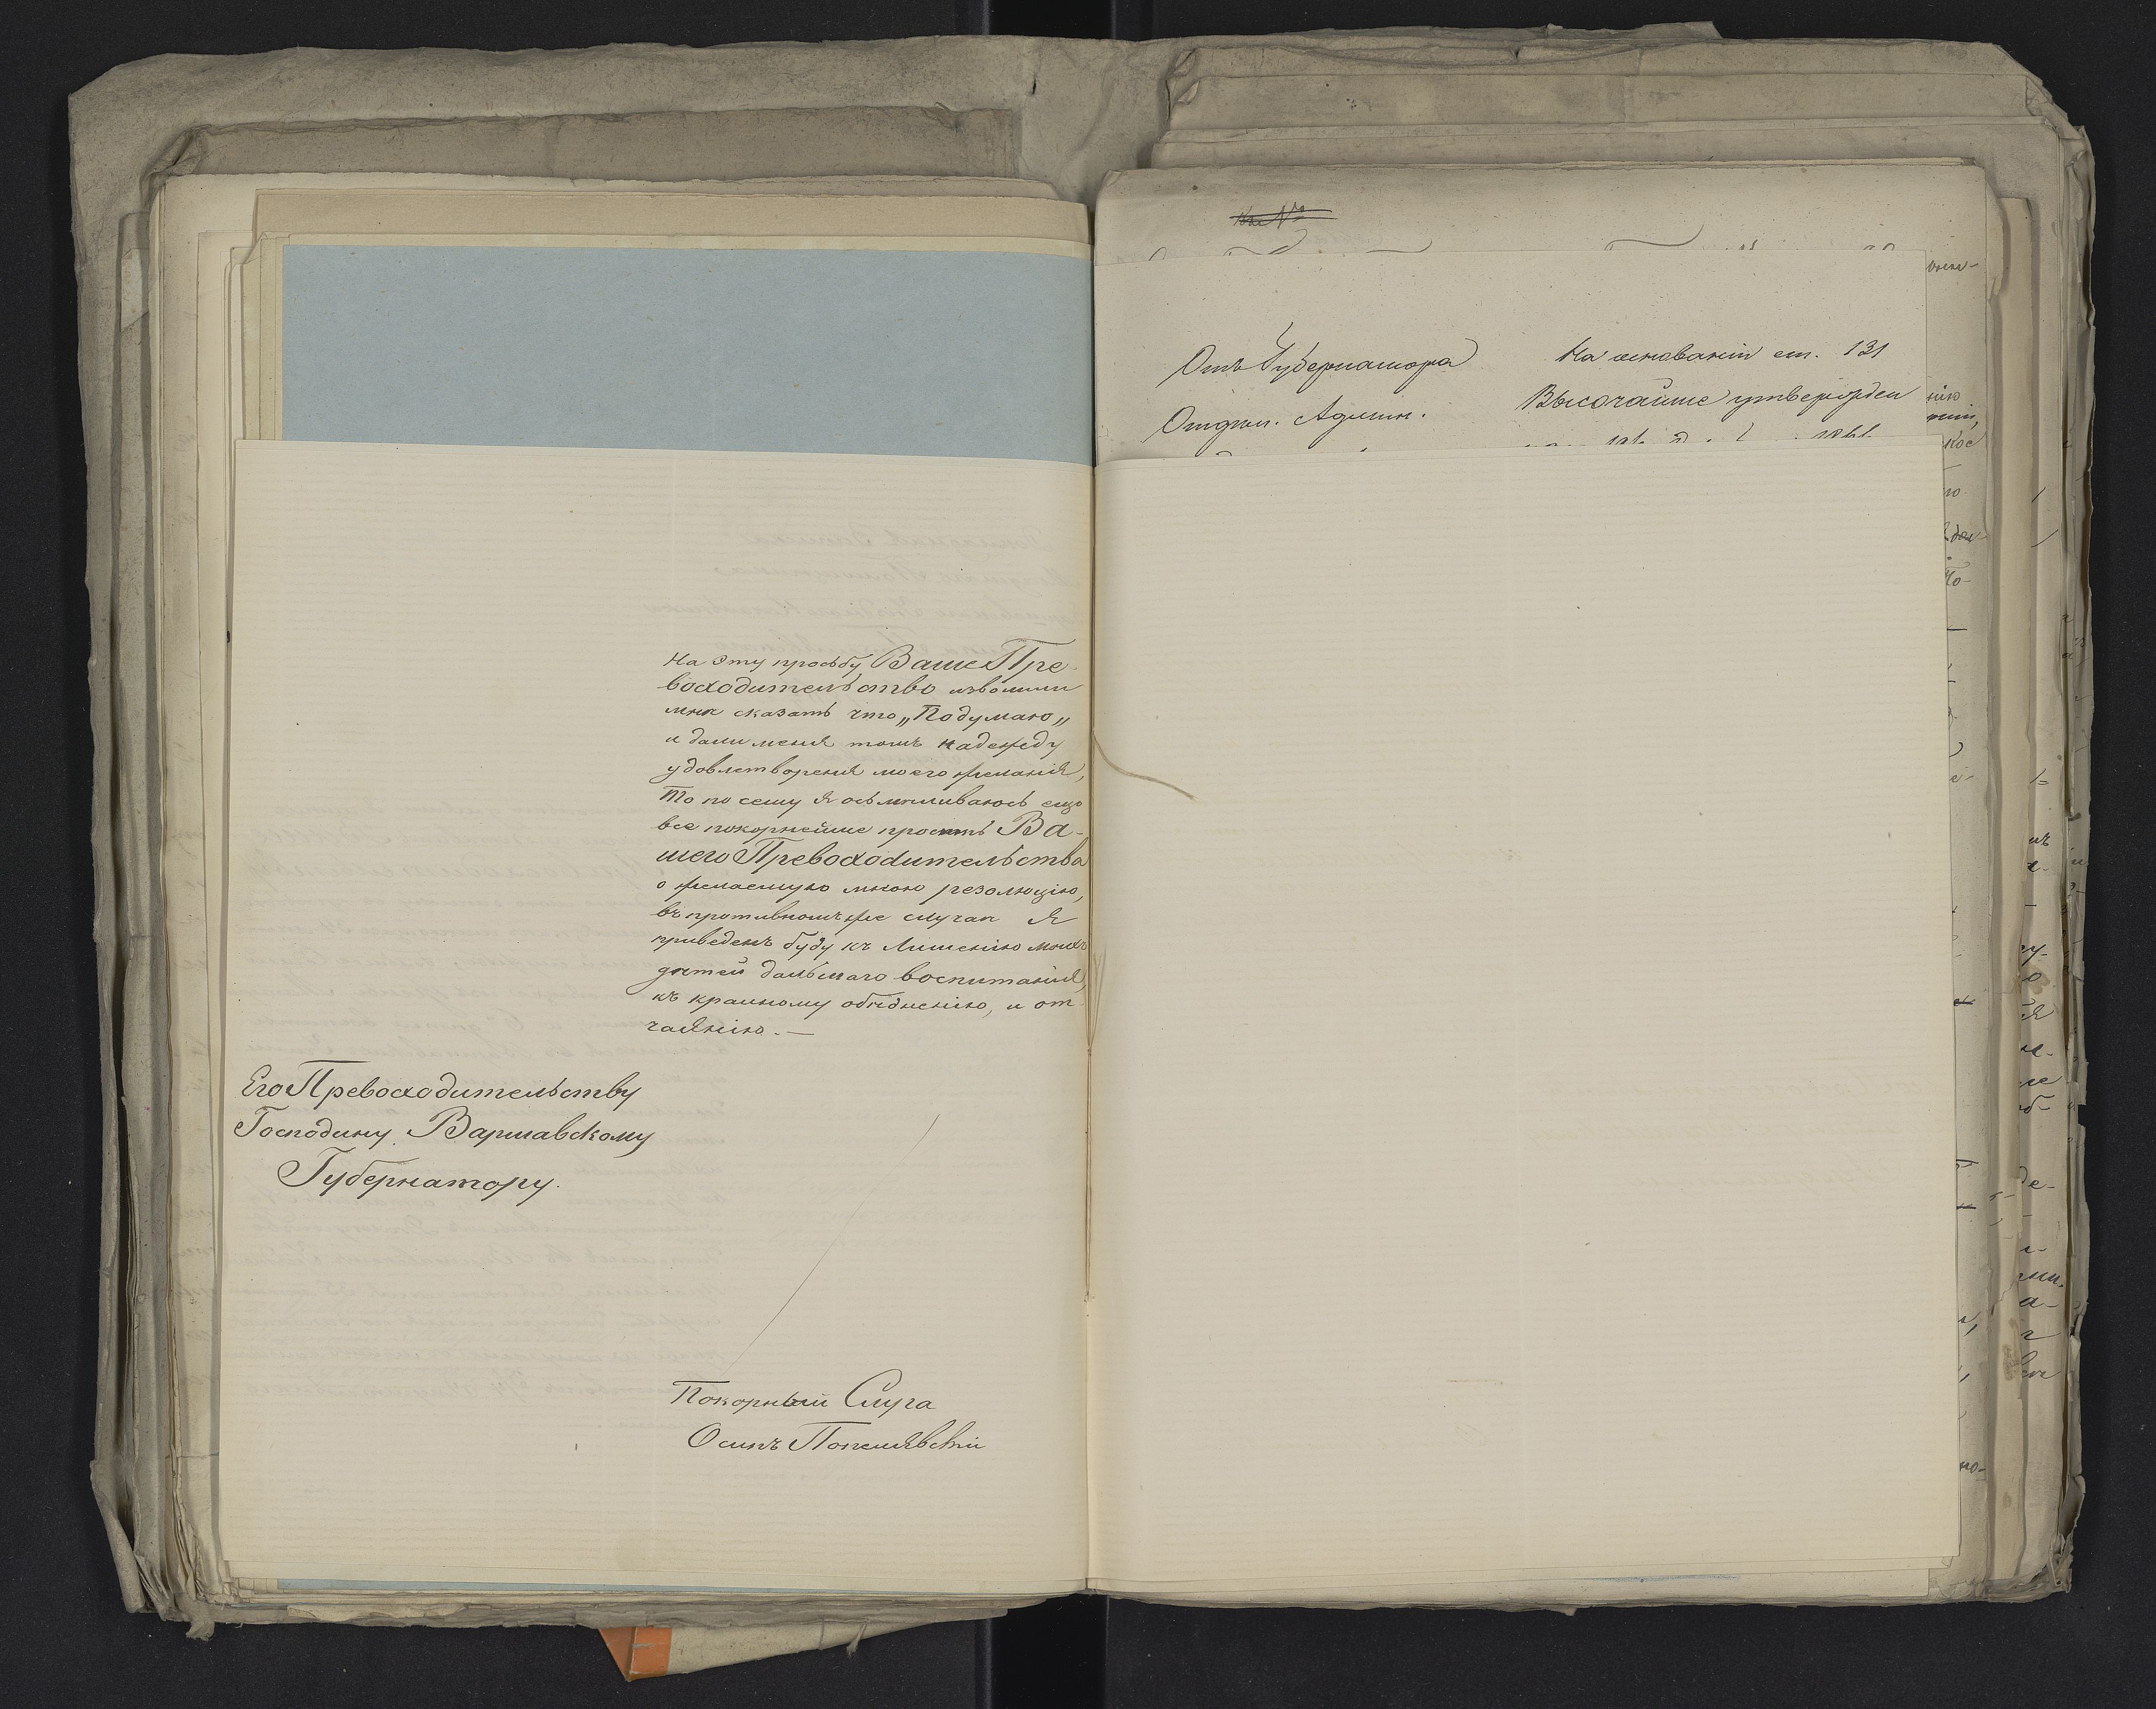 На эту просьбу Ваше Пре-
восходительство изволили
мнѣ сказать что „Подумаю„
и дали меня томъ надежду
удовлетворенія моего желанія,
То по сему я осьмѣливаюсь ещо
все покорнейше просить Ва-
шего Превосходительства
о желаемую мною резолюцію,
въ противномъ же случаѣ я
приведенъ буду къ Лишенію моихъ
дѣтей дальшаго воспитанія,
къ крайному обѣднению, и от
чаянію. —
Его Превосходительству
Господину Варшавскому
Губернатору.
Покорный Слуга
Осипъ
Отъ Губернатора
Отдѣл. Админ.
На основаніи ст. 131
Высочайше утвержден